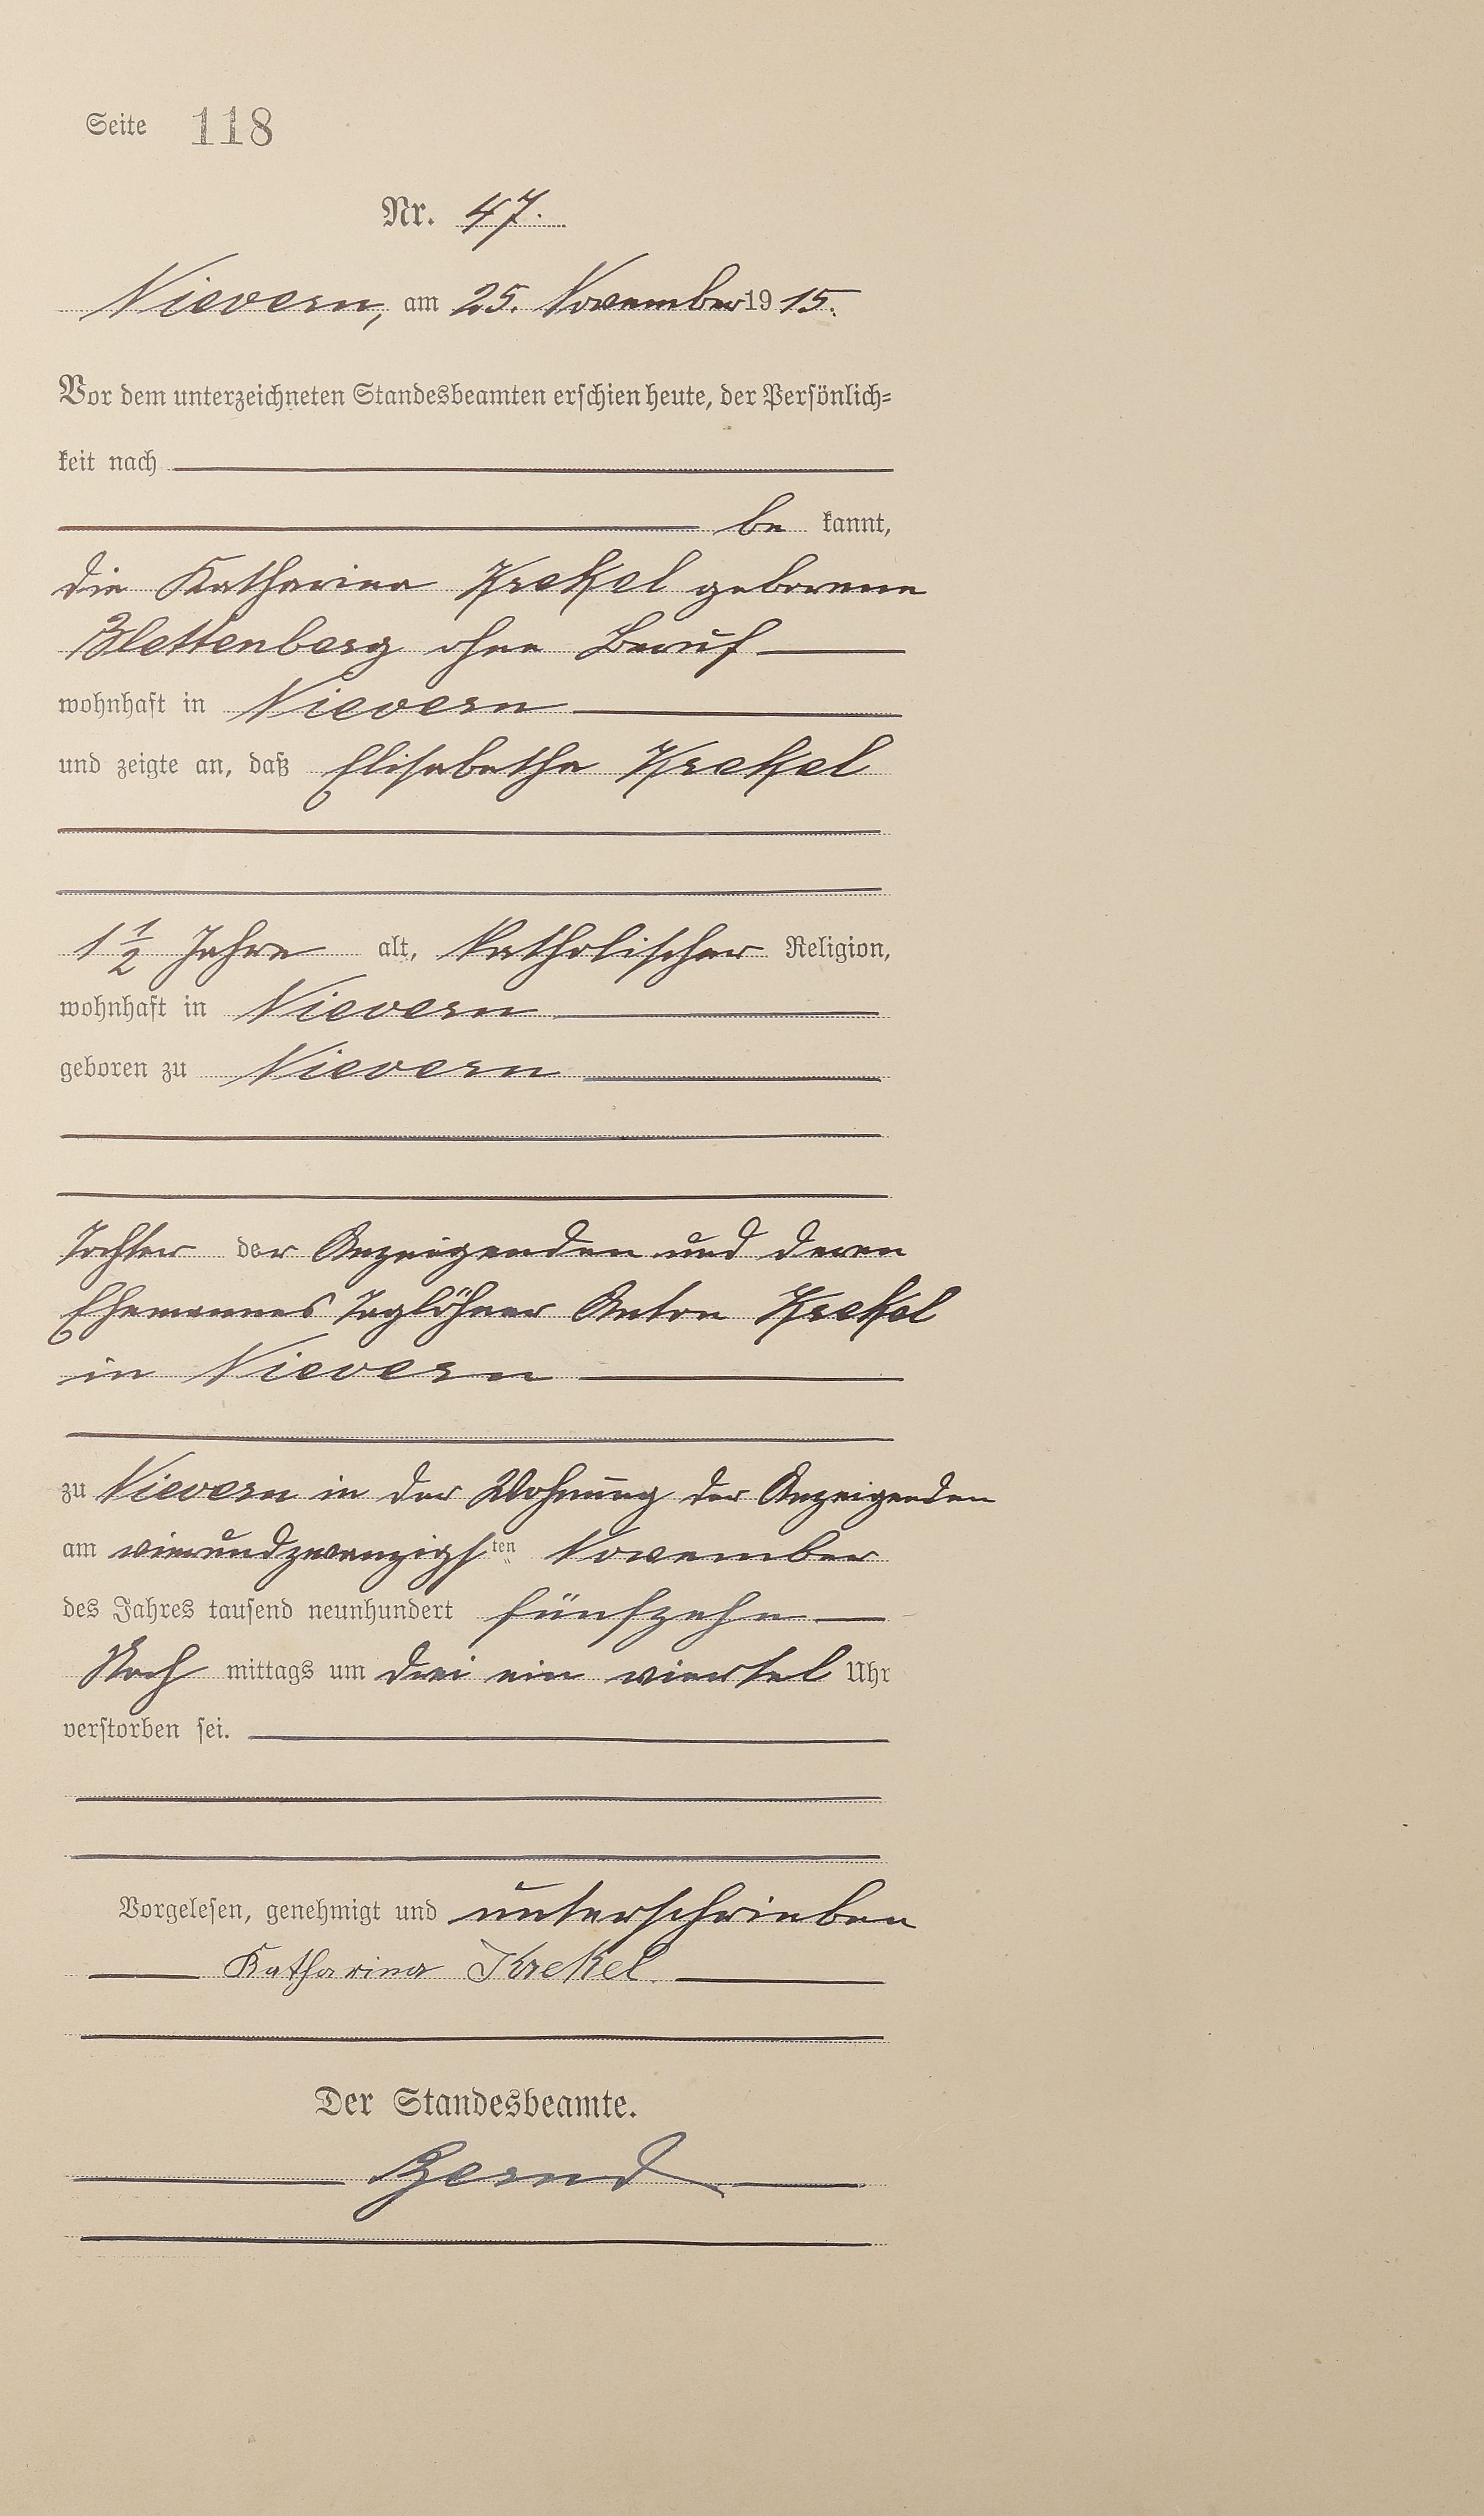 Seite 118
Nr. 47.
Nievern, am 25. November 1915.
Vor dem unterzeichneten Standesbeamten erschien heute, der Persönlich=
keit nach
be kannt,
die Katharina Krekel geborene
Blettenberg ohne Beruf
wohnhaft in Nievern
und zeigte an, daß Elisabetha Krekel
1 1/2 Jahre alt, katholischer Religion,
wohnhaft in Nievern
geboren zu Nievern
Tochter der Anzeigenden und deren
Ehemannes Taglöhner Anton Krekel
in Nievern
zu Nievern in der Wohnung der Anzeigenden
am vierundzwanzigsten November
des Jahres tausend neunhundert fünfzehn
Nach mittags um drei ein viertel Uhr
verstorben sei.
Vorgelesen, genehmigt und unterschrieben
Katharina Krekel.
Der Standesbeamte.